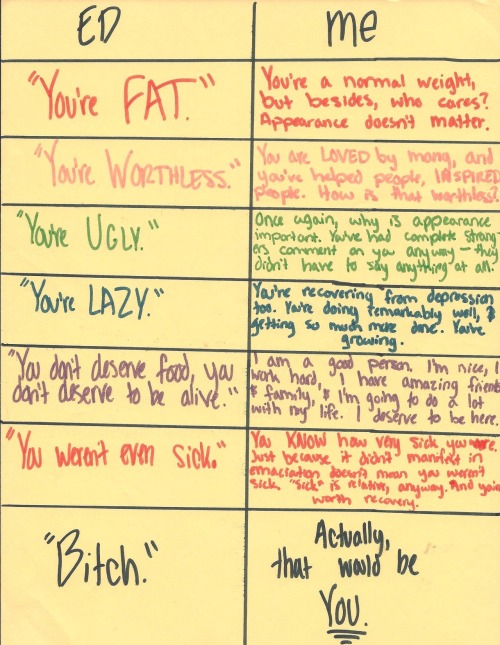 ED
me
"You're FAT."
You're a normal weight,
but besides, who cares?
Appearance doesn't matter.
"You're WORTHLESS."
You are LOVED by many, and
you've helped people, INSPIRED
people. How is that worthless?
"You're UGLY."
Once again, why is appearance
important. You've had complete strang-
ers comment on you anyway - they
didn't have to say anything at all!
"You're LAZY."
You're recovering from depression
too. You're doing remarkably well, &
getting so much more done. You're
growing.
"You don't deserve food, you
don't deserve to be alive."
I am a good person. I'm nice, I
work hard, I have amazing friends
& family, & I'm going to do a lot
with my life. I deserve to be here.
"You weren't even sick."
You KNOW how very sick you were.
Just because it didn't manifest in
emaciation doesn't mean you weren't
sick. "Sick" is relative, anyway. And you're
worth recovery.
"Bitch."
Actually,
that would be
YOU.